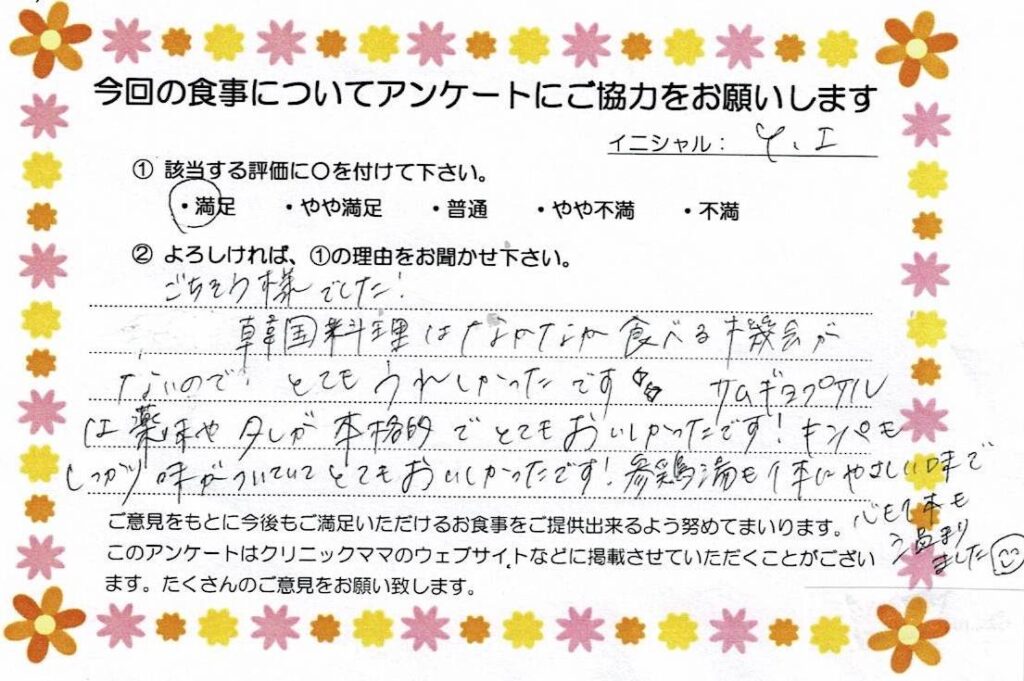 今回の食事についてアンケートにご協力をお願いします
イニシャル： Y、I
① 該当する評価に〇を付けて下さい。
・満足 ・やや満足 ・普通 ・やや不満 ・不満
② よろしければ、①の理由をお聞かせ下さい。
ごちそう様でした！
韓国料理はなかなか食べる機会が
ないので、とてもうれしかったです
サムギョプサル
は薬味やタレが本格的でとてもおいしかったです！キンパも
しっかり味がついていてとてもおいしかったです！参鶏湯も体にやさしい味で
心も体も
温まり
ました
ご意見をもとに今後もご満足いただけるお食事をご提供出来るよう努めてまいります。
このアンケートはクリニックママのウェブサイトなどに掲載させていただくことがござい
ます。たくさんのご意見をお願い致します。